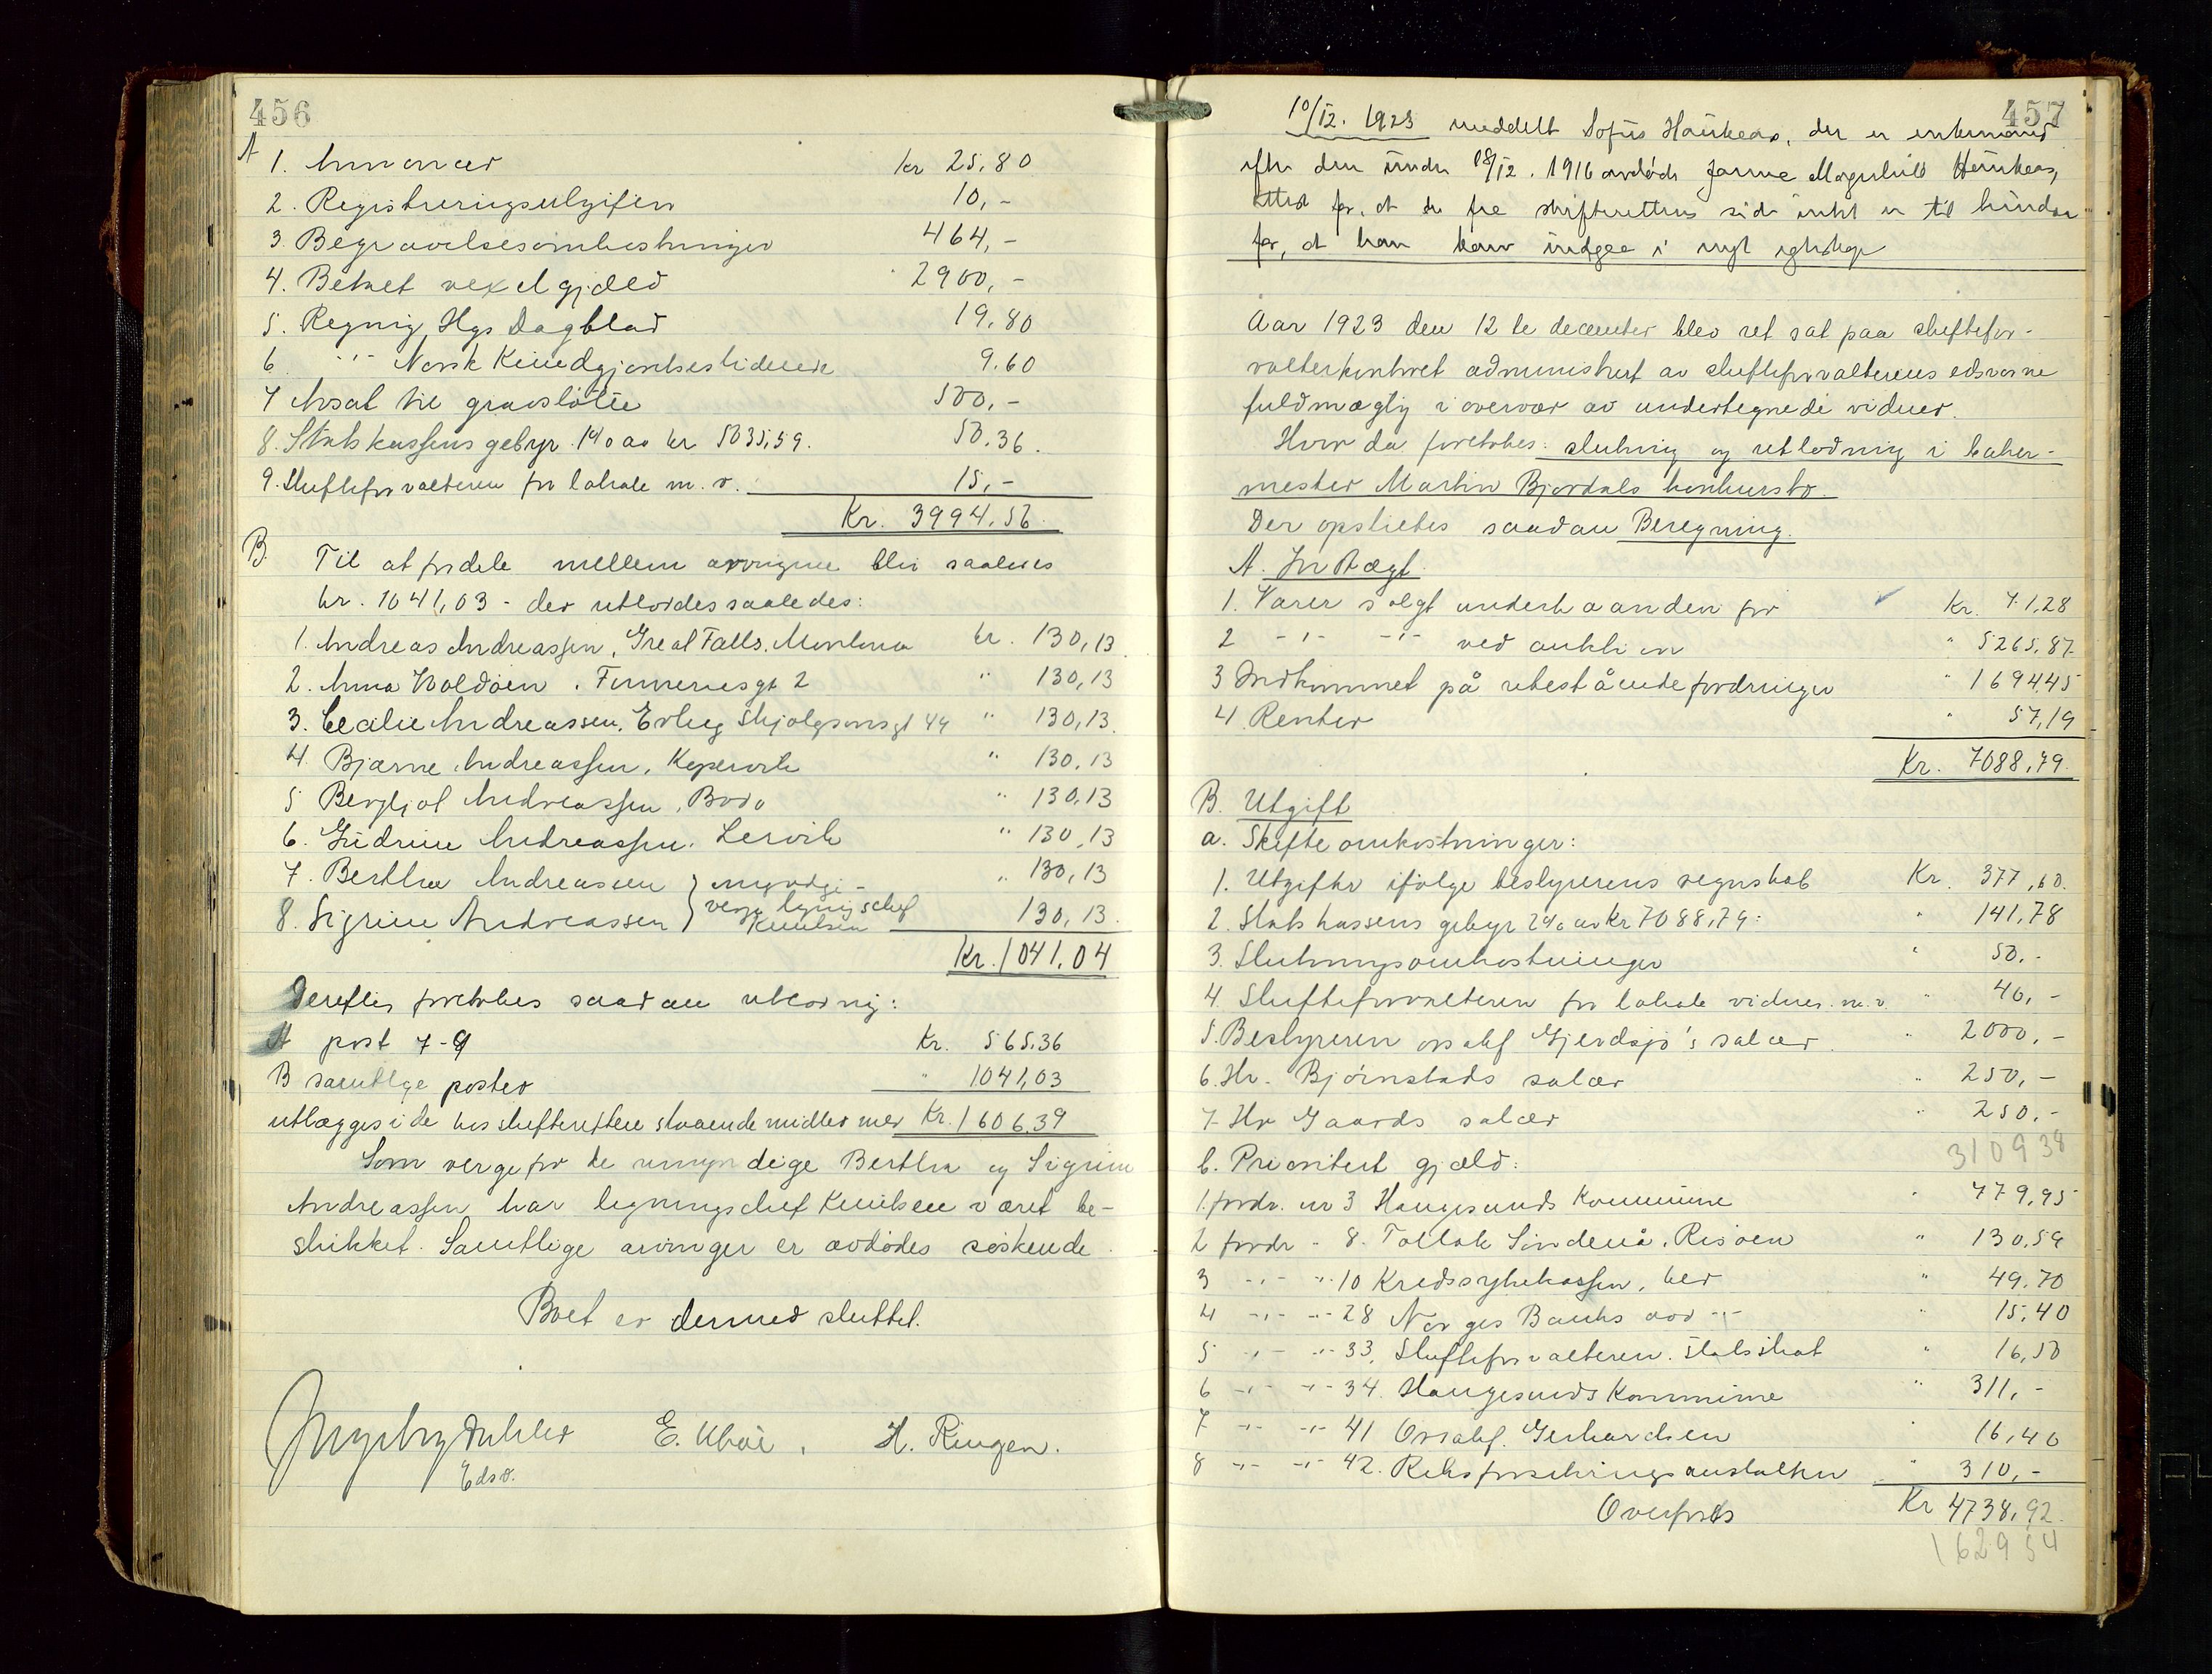 456
A
1. Annoncer kr 25,80
2. Registreringsutgifter 10,-
3. Begravelsesomkostninger 464,-
4. Betalt vexelgjæld 2900,-
5. Regning Hgs Dagblad 19,80
6 -"- Norsk Kundgjørelsestidende 9.60
7 Avsat til gravstøtte 500,-
8. Statskassens gebyr 1% av kr 5035,59. 50.36.
9. Skifteforvalteren for lokale m.v. 15,-
Kr. 3994,56
B. Til at fordele mellem arvingene blir saaledes
kr. 1041,03 - der utloddes saaledes:
1. Andreas Andreassen, Great Falls. Montana kr. 130,13
2. Anna Haldøen, Tinneriesgt 2 " 130,13
3. Cecilie Andreassen, Erling Skjalgsonsgt 44 " 130,13
4. Bjarne Andreassen, Kopervik " 130,13
5 Bergljot Andreassen, Bodø " 130,13
6. Gudrun Andreassen. Lervik " 130,13
7. Bertha Andreassen } umyndige- " 130,13
8. Sigrun Andreassen } verge ligningschef Knutsen 130,13
Kr. 1041,04
Derefter foretokes saadan utlodning:
A post 7-9 Kr. 565,36
B samtlige poster " 1041,03
utlægges i de hos skifteretten staaende midler med Kr. 1606,39
Som verge for de umyndige Bertha og Sigrun
Andreassen har ligningschef Knutsen været be-
skikket. Samtlige arvinger er avdødes søskende.
Boet er dermed sluttet.
E. H. Ringen.
Edsv.
457
10/12. 1923 meddelt Sofus Haukeas, der er enkemand
efter den under 18/12. 1916 avdøde Magnhild Haukeas,
attest for, at der fra skifterettens side intet er til hinder
for, at han kan indgaa i nyt egteskap
Aar 1923 den 12te december blev ret sat paa skiftefor-
valterkontoret administrert av skifteforvalterens edsvorne
fuldmægtig i overvær av undertegnede vidner.
Hvor da foretokes: slutning og utlodning i baker-
mester Martin Bjordals konkursbo.
Der opstilles saadan Beregning.
A. Indtægt.
1. Varer solgt underhaanden for Kr. 71,28
2 -"- -"- ved auktion " 5265,87
3 Indkommet på utestående fordringer " 1694,45
4 Renter " 57,19
Kr. 7088,79
B. Utgift
a. Skifteomkostninger:
1. Utgifter ifølge bestyrerens regnskab Kr. 377,60.
2. Statskassens gebyr 2% av kr 7088,79: " 141,78
3. Slutningsomkostninger " 50.-
4. Skifteforvalteren for lokale vidner m.v. " 40,-
5. Bestyreren orsakf. Gjerdsjø's salær " 2000,-
6. Hr. Bjørnstads salær " 250,-
7. Hr Gaards salær " 250.-
310938
b. Prioritert gjæld:
1. fordr. nr 3 Haugesunds Kommune " 779,95
2 fordr " 8. Tollak Sindenå. Risøen " 130,59
3 -"- -"- 10 Kredssykekassen, her " 49.70
4 -"- -"- 28 Norges Banks avd -"- " 15.40
5 -"- -"- 33. Skifteforvalteren. statsskat " 16,50
6 -"- -"- 34. Haugesunds Kommune " 311,-
7 -"- -"- 41 Orsakf. Gerhardsen " 16,40
8 -"- -"- 42. Riksforsikringsanstalten " 310,-
Overføres Kr 4738,92.
162954